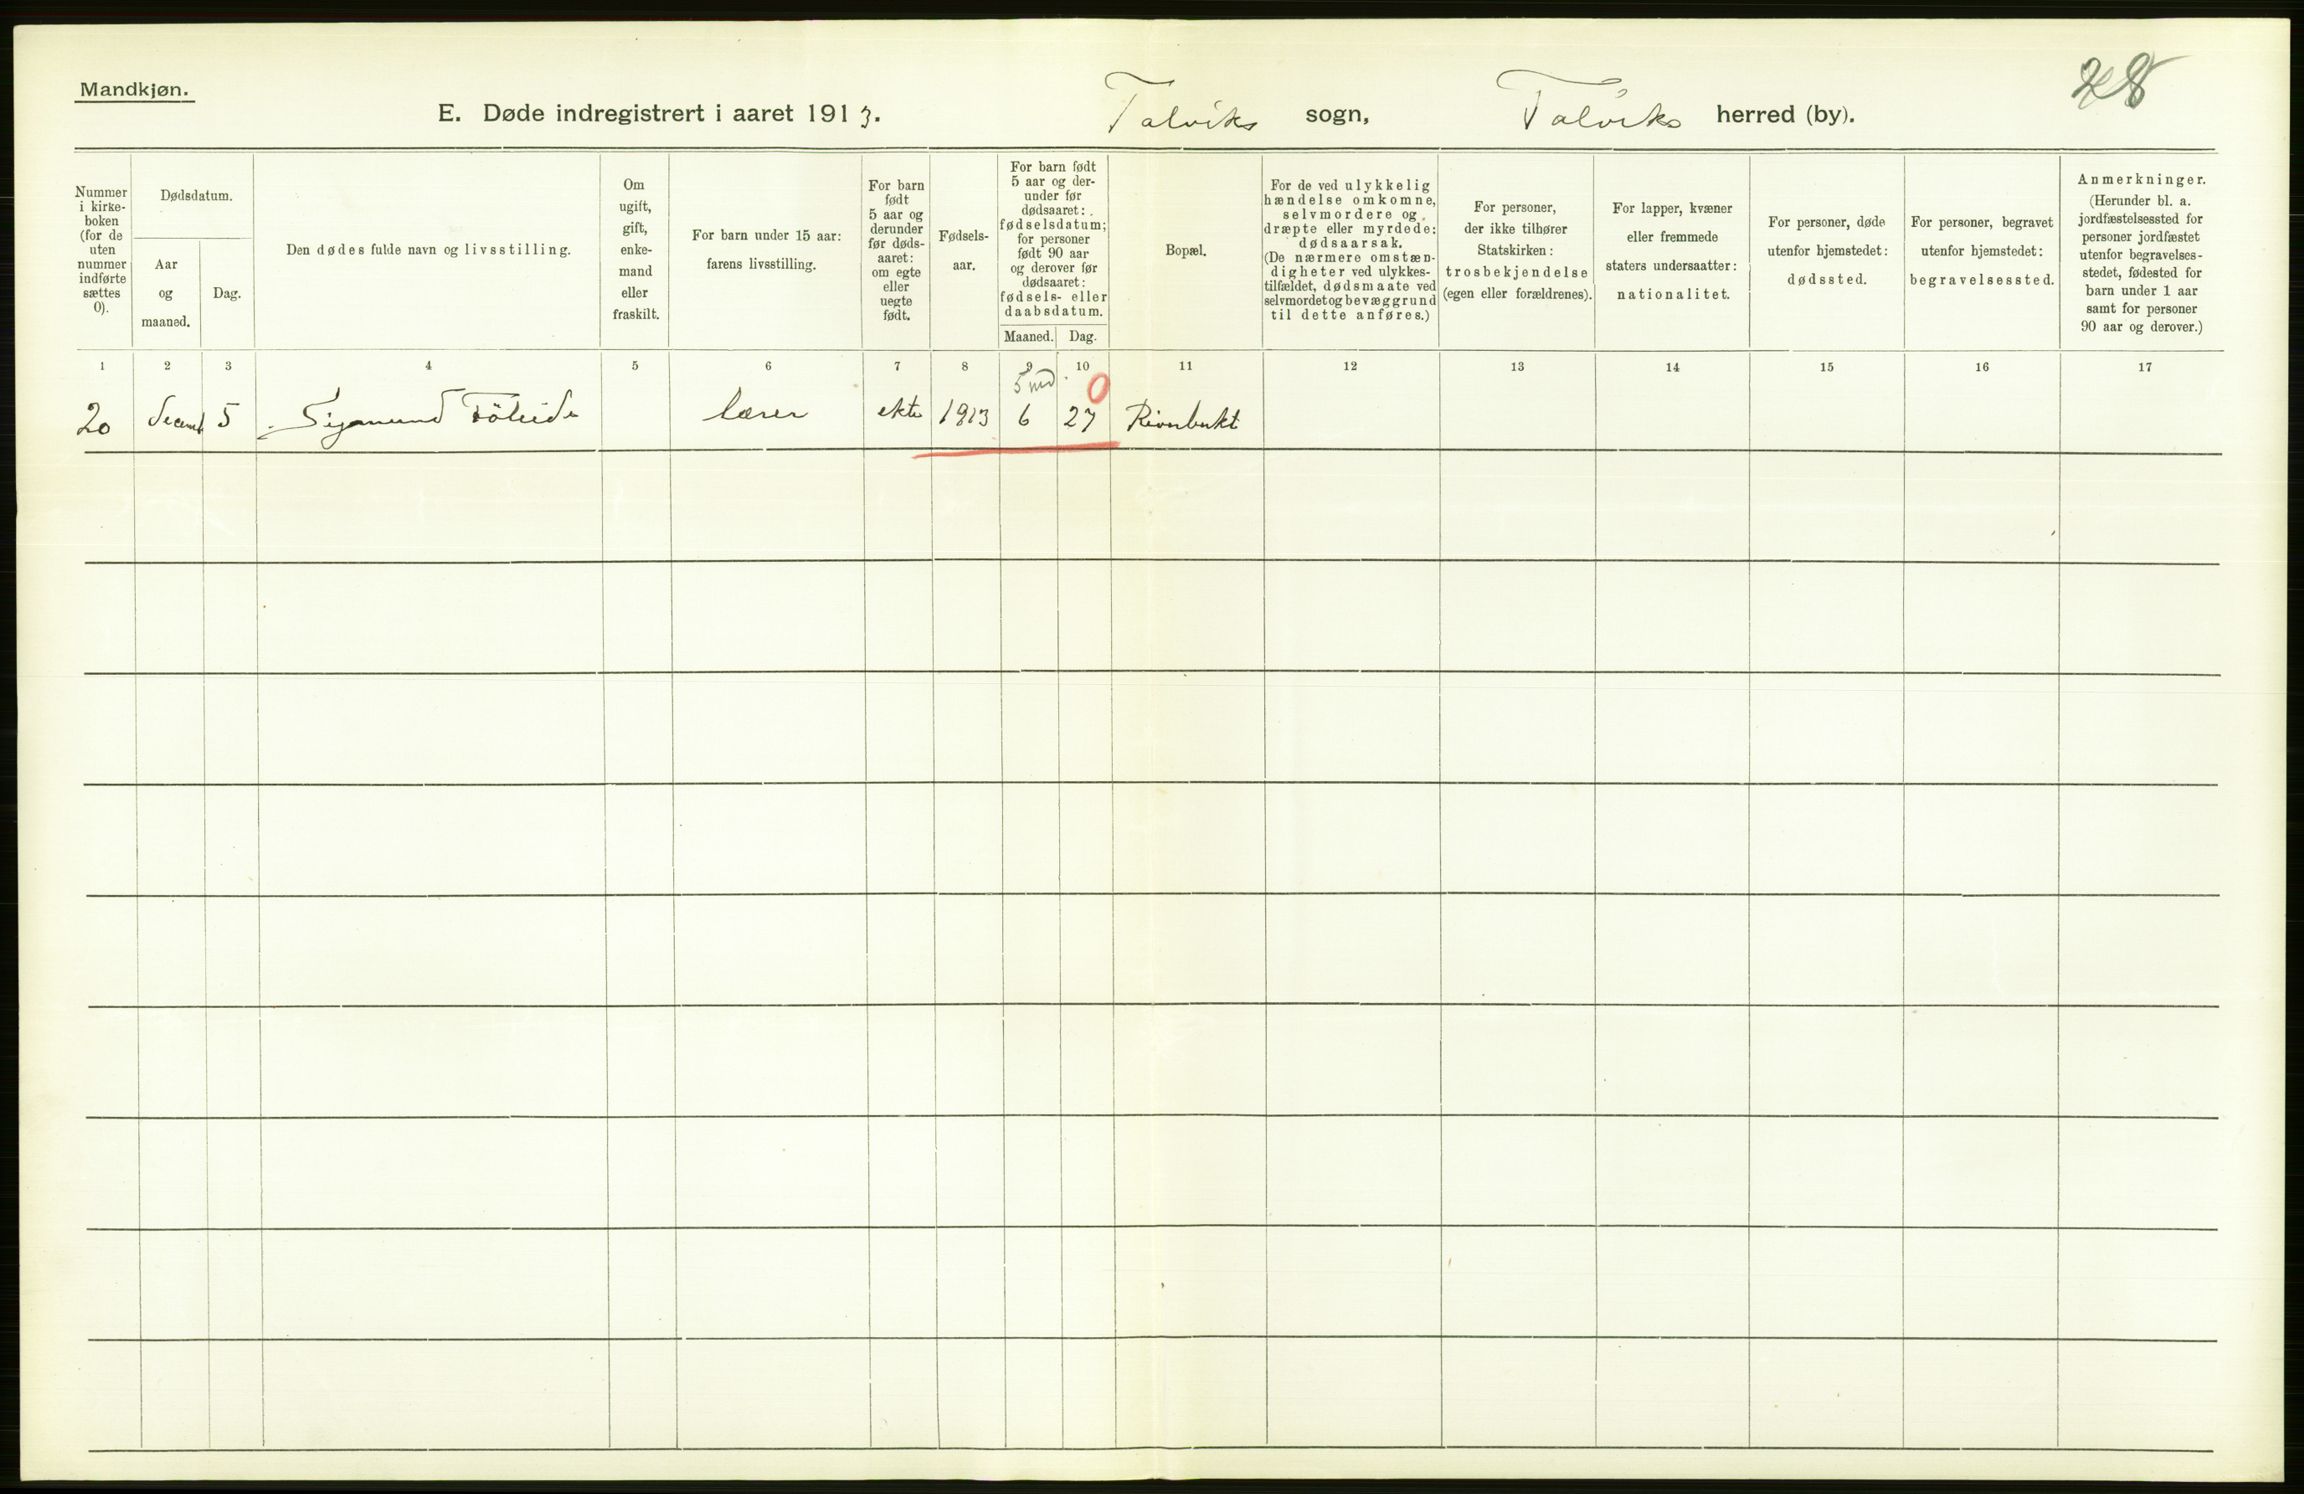 Mandkjøn.
28
E. Døde indregistrert i aaret 1913. Talviks sogn, Talviks herred (by).
Nummer
i kirke-
boken
(for de
uten
nummer
indførte
sættes
0).
Dødsdatum.
Aar
og
maaned.
Dag.
Den dødes fulde navn og livsstilling.
Om
ugift,
gift,
enke-
mand
eller
fraskilt.
For barn under 15 aar:
farens livsstilling.
For barn
født
5 aar og
derunder
før døds-
aaret:
om egte
eller
uegte
født.
Fødsels-
aar.
For barn født
5 aar og der-
under før
dødsaaret:
fødselsdatum;
for personer
født 90 aar
og derover før
dødsaaret:
fødsels- eller
daabsdatum.
Maaned. Dag.
Bopæl.
For de ved ulykkelig
hændelse omkomne,
selvmordere og
dræpte eller myrdede:
dødsaarsak.
(De nærmere omstæn-
digheter ved ulykkes-
tilfældet, dødsmaate ved
selvmordet og bevæggrund
til dette anføres.)
For personer,
der ikke tilhører
Statskirken:
trosbekjendelse
(egen eller forældrenes).
For lapper, kvæner
eller fremmede
staters undersaatter:
nationalitet.
For personer, døde
utenfor hjemstedet:
dødssted.
For personer, begravet
utenfor hjemstedet:
begravelsessted.
Anmerkninger.
(Herunder bl. a.
jordfæstelsessted for
personer jordfæstet
utenfor begravelses-
stedet, fødested for
barn under 1 aar
samt for personer
90 aar og derover.)
1 2 3 4 5 6 7 8 9 10 11 12 13 14 15 16 17
5 md 0
20 decemb 5 Sigmund lærer ekte 1913 6 27